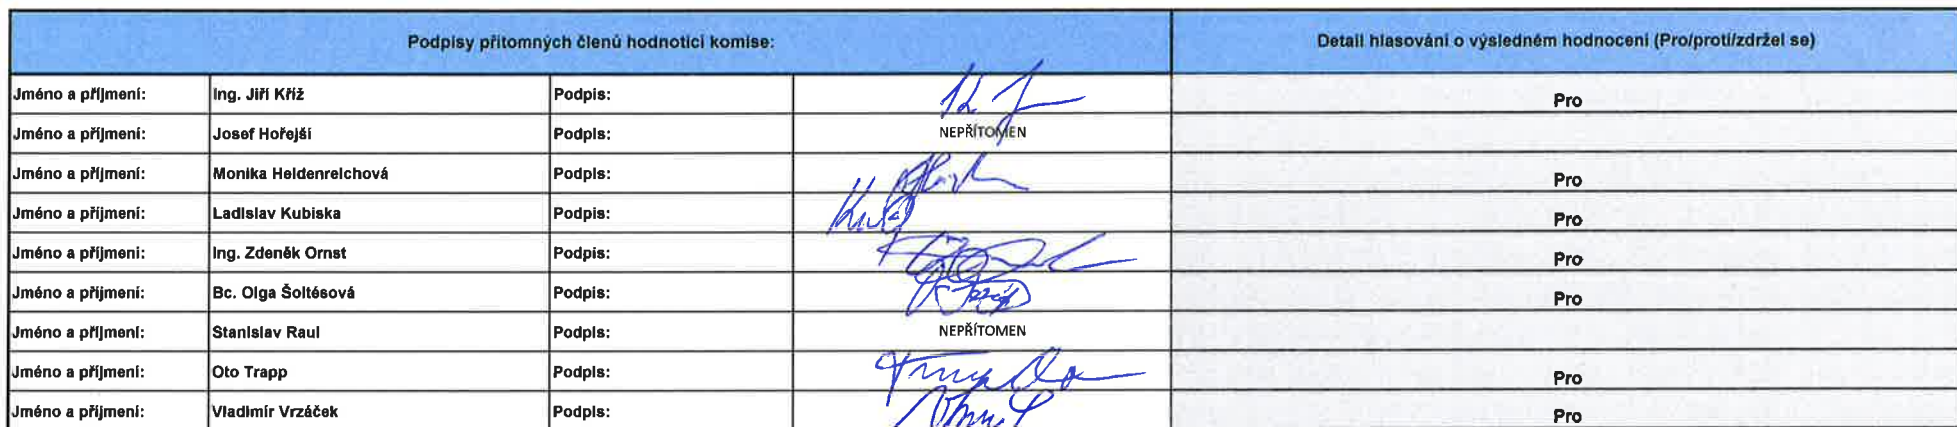 Podpisy přítomných členů hodnotící komise: Detail hlasování o výsledném hodnocení (Pro/proti/zdržel se)
Jméno a příjmení: Ing. Jiří Kříž Podpis: Pro
Jméno a příjmení: Josef Hořejší Podpis: NEPŘÍTOMEN
Jméno a příjmení: Monika Heidenreichová Podpis: Pro
Jméno a příjmení: Ladislav Kubiska Podpis: Pro
Jméno a příjmení: Ing. Zdeněk Ornst Podpis: Pro
Jméno a příjmení: Bc. Olga Šoltésová Podpis: Pro
Jméno a příjmení: Stanislav Raul Podpis: NEPŘÍTOMEN
Jméno a příjmení: Oto Trapp Podpis: Pro
Jméno a příjmení: Vladimír Vrzáček Podpis: Pro